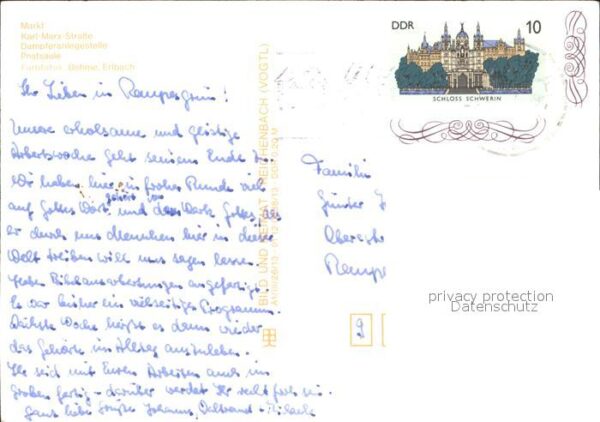 Markt
Karl-Marx-Straße
Dampferanlegestelle
Postsäule
Farbfotos: Böhme, Erlbach
DDR 10
SCHLOSS SCHWERIN
BILD UND HEIMAT REICHENBACH (VOGTL)
Ihr Lieben in Rempesgrün!
Unsere erholsame und geistige
Arbeitswoche geht seinem Ende
Wir haben hier in froher Runde viel
auf Gottes Wort gehört und das Werk Gottes, das
er durch uns Menschen hier in dieser
Welt treiben will uns sagen lassen.
haben angefertigt.
Es war bisher ein vielseitiges Programm.
Nächste Woche heißt es dann wieder
das Gehörte im Alltag auszuleben.
Ihr seid mit Euren Arbeiten auch im
Groben fertig - darüber werdet Ihr recht froh sein.
Ganz liebe Grüße Johannes,
Familie
Günter
9
privacy protection
Datenschutz